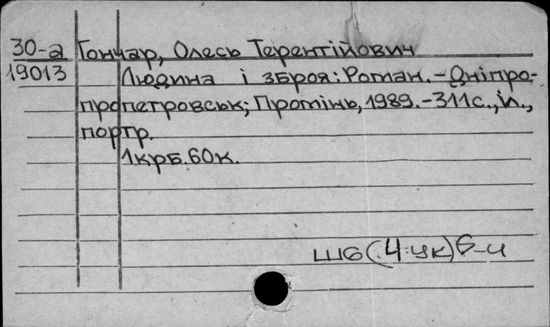 30-а Гончар, Олесь Терентійович
19013 Людина і зброя: Роман. - Дніпро-
пропетровськ; Промінь, 1989. - 311с., іл.,
портр.
1крб. 60к.
Ш6(4Ук)6-4